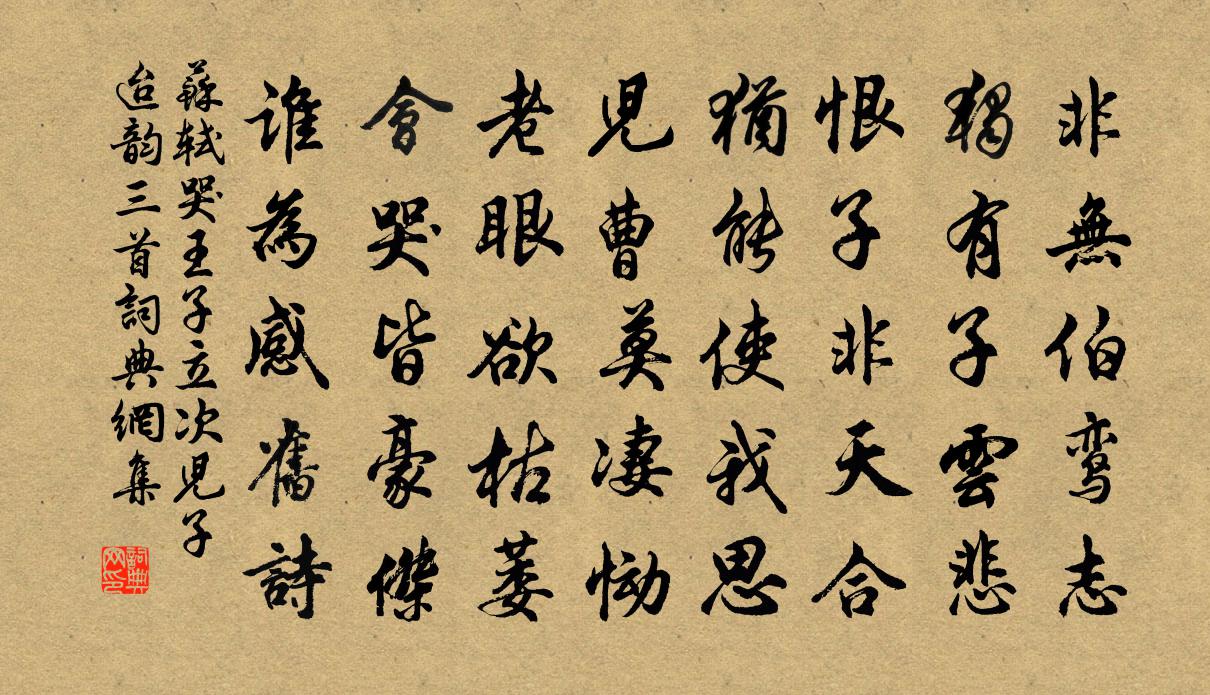 非無伯鸞志
獨有子雲悲
恨子非天合
猶能使我思
児曹莫凄慟
老眼欲枯萎
會哭皆豪傑
誰為感舊詩
蘇軾哭王子立次児子
迨韵三首詞典網集
詞典網印